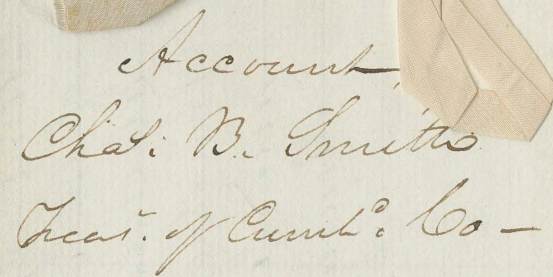 Account
Chas. B. Smith
Treas. of Cumb.d Co -